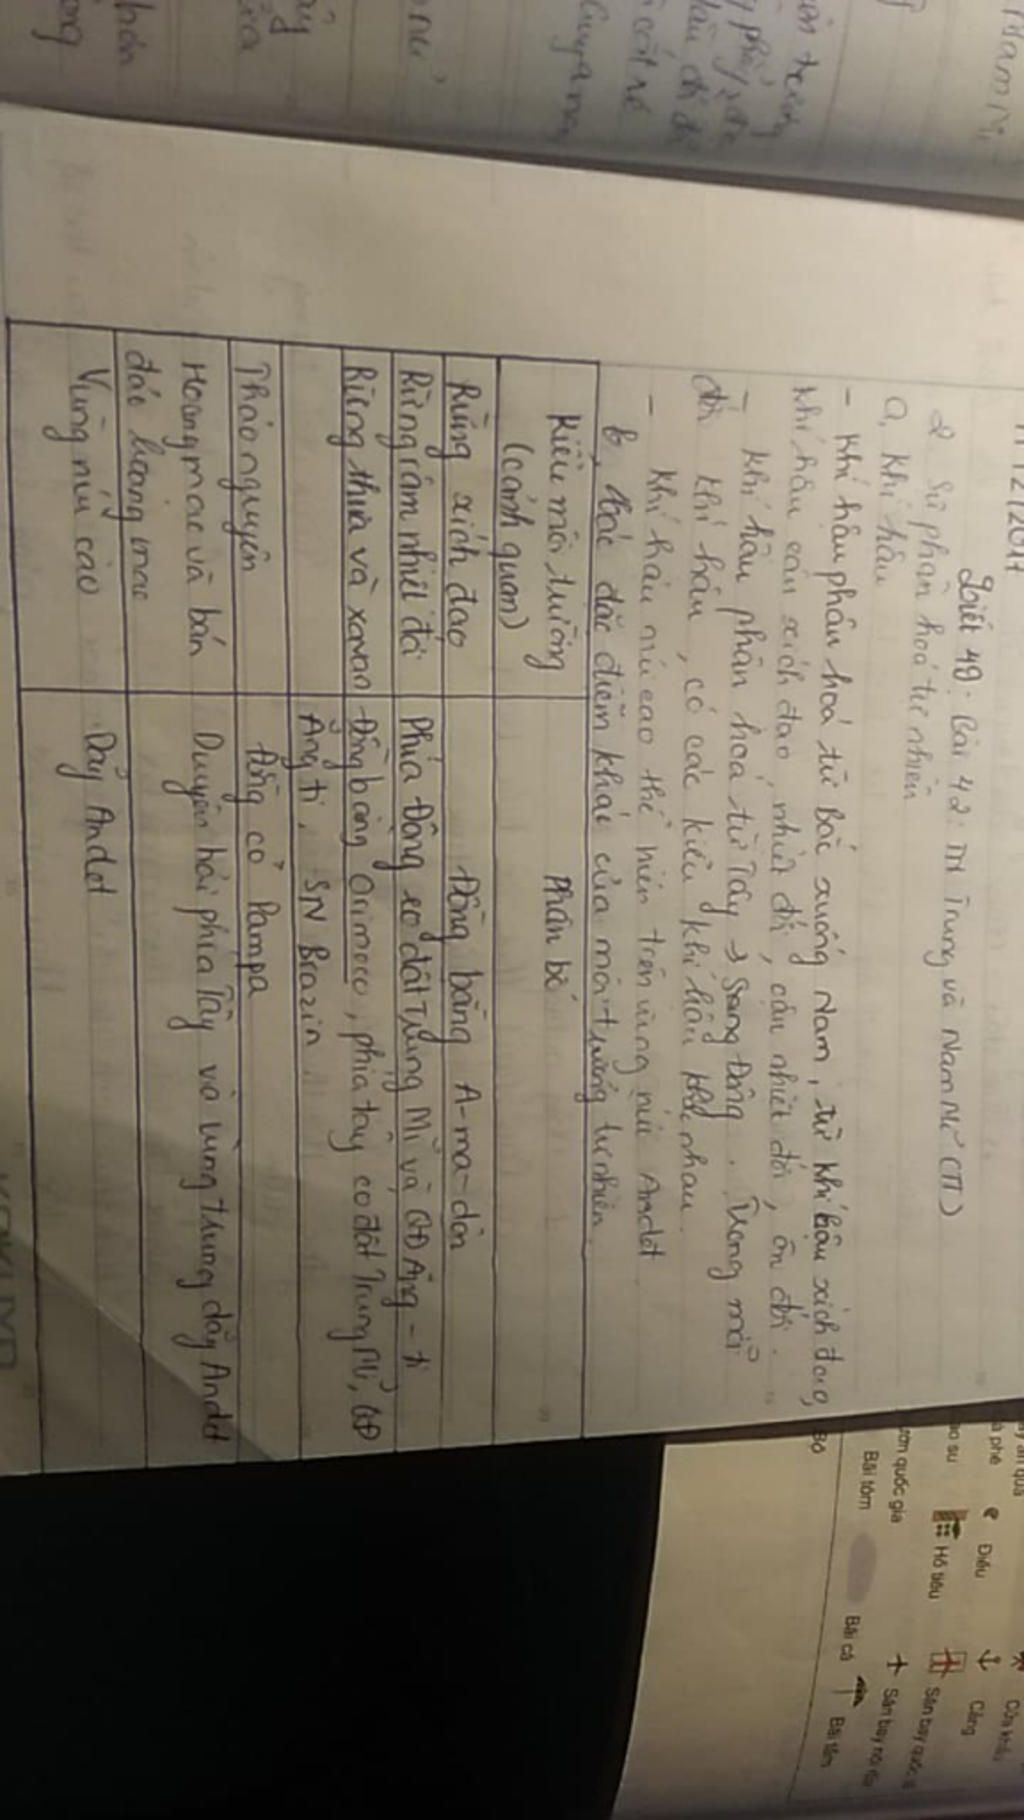 Tiết 48. Bài 42: TN Trung và Nam Mĩ (TT)
2. Sự phân hoá tự nhiên
a, Khí hậu
- Khí hậu phân hoá từ Bắc xuống Nam, từ khí hậu xích đạo,
khí hậu cận xích đạo, nhiệt đới, cận nhiệt đới, ôn đới.
- Khí hậu phân hoá từ Tây → Sang Đông. Trong mỗi
đới khí hậu, có các kiểu khí hậu khác nhau.
- Khí hậu núi cao thể hiện trên vùng núi Andet
b, Các đặc điểm khác của môi trường tự nhiên.
Kiểu môi trường
(cảnh quan)
Phân bố
Rừng xích đạo
Đồng bằng A-ma-dôn
Rừng rậm nhiệt đới
Phía Đông eo đất Trung Mĩ và QĐ Ăng-ti
Rừng thưa và xavan
Đồng bằng Orinoco, phía tây eo đất Trung Mĩ, QĐ
Ăng ti, SN Brazin
Thảo nguyên
Đồng cỏ Pampa
Hoang mạc và bán
Duyên hải phía Tây và vùng trung dãy Andet
đác hoang mạc
Vùng núi cao
Dãy Andet
Điều
Hồ tiêu
Cảng
Sân bay quốc tế
Sân bay nội địa
ườn quốc gia
Bãi tôm
Bãi cá
Bãi tắm